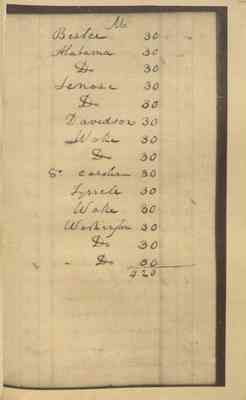 Bertie 30
Alabama 30
Do 30
Lenoir 30
Do 30
Davidson 30
Wake 30
Do 30
So Carolina 30
Tyrrele 30
Wake 30
Washington 30
Do 30
" Do 30
420